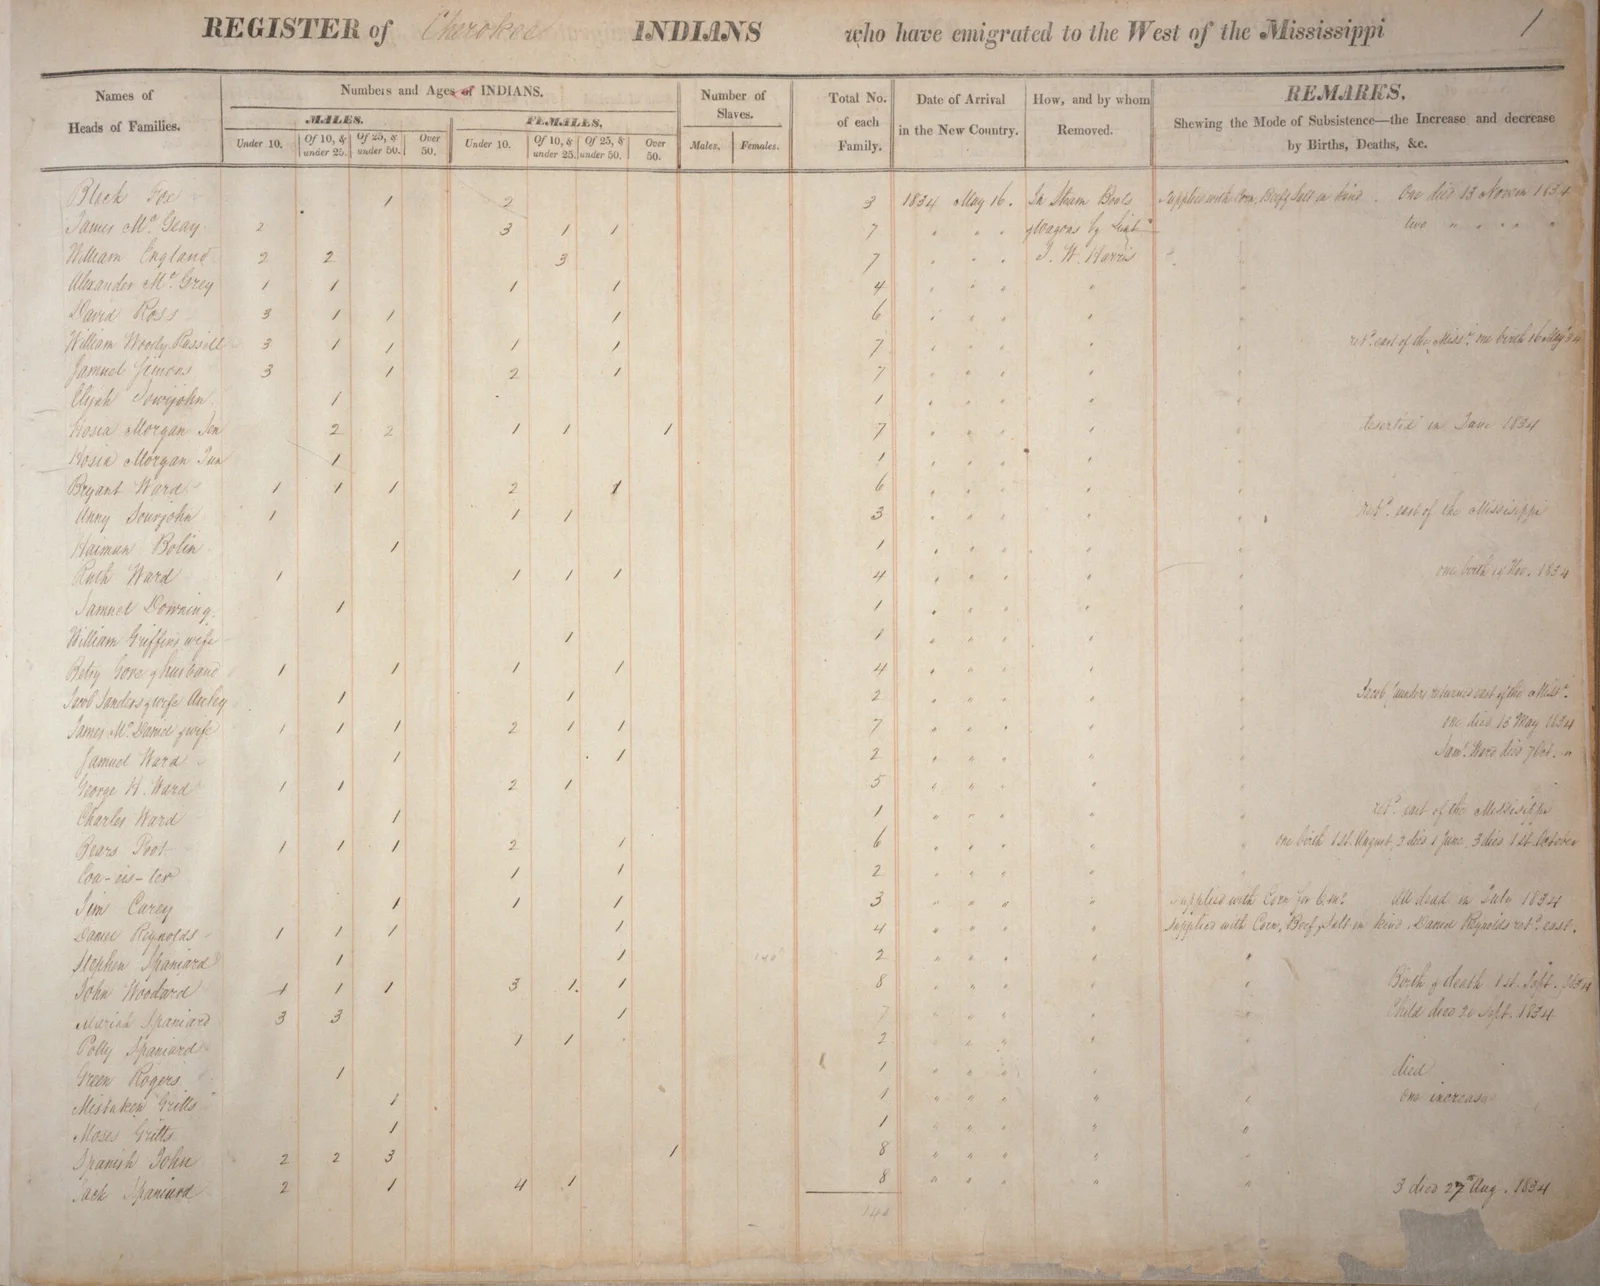 REGISTER of Cherokee INDIANS who have emigrated to the West of the Mississippi 1
Names of Heads of Families.
Numbers and Ages of INDIANS.
MALES. FEMALES.
Under 10. Of 10, & under 25. Of 25, & under 50. Over 50. Under 10. Of 10, & under 25. Of 25, & under 50. Over 50.
Number of Slaves.
Males. Females.
Total No. of each Family.
Date of Arrival in the New Country.
How, and by whom Removed.
REMARKS,
Shewing the Mode of Subsistence—the Increase and decrease by Births, Deaths, &c.
Black Fox 1 2 3 1834 May 16. In Steam Boats Supplied with Corn, Beef, Salt in kind. One died 13 Novem 1834
James Mc. Gray 2 3 1 1 7 " " " & Wagons by Lieut " two " " " "
William England 2 2 3 7 " " " J. W. Harris "
Alexander Mc. Grey 1 1 1 1 4 " " " " "
David Ross 3 1 1 1 6 " " " " "
William Woody Russell 3 1 1 1 1 7 " " " " " retd. east of the Missi. one birth 16 May 34
Samuel Simons 3 1 2 1 7 " " " " "
Elijah Sowijohn 1 1 " " " " "
Hosia Morgan Sen 2 2 1 1 1 7 " " " " " deserted in June 1834
Hosia Morgan Jun 1 1 " " " " "
Bryant Ward 1 1 1 2 1 6 " " " " "
Anny Sourjohn 1 1 1 3 " " " " " retd. east of the Mississippi
Haiman Bolin 1 1 " " " " "
Ruth Ward 1 1 1 1 4 " " " " " one birth 19 Nov. 1834
Samuel Downing 1 1 " " " " "
William Griffin's wife 1 1 " " " " "
Betsy Gore & husband 1 1 1 1 4 " " " " "
Jacob Sanders & wife 1 1 2 " " " " " Jacob Sanders returned east of the Missi.
James Mc. Daniel & wife 1 1 1 2 1 1 7 " " " " " one died 15 May 1834
Samuel Ward 1 1 2 " " " " " Saml. Ward died 7 Oct. "
George H. Ward 1 1 2 1 5 " " " " "
Charles Ward 1 1 " " " " " retd. east of the Mississippi
Bears Foot 1 1 1 2 1 6 " " " " " one birth 1st. August, 2 died 1 June, 3 died 1st. October
Coa-eis-ter 1 1 2 " " " " "
Jim Carey 1 1 1 3 " " " " Supplied with Corn for 6 mo. All dead in July 1834
Daniel Reynolds 1 1 1 1 4 " " " " Supplied with Corn, Beef, Salt in kind, Daniel Reynolds retd. east.
Stephen Spaniard 1 1 2 " " " " "
John Woodard 1 1 1 3 1 1 8 " " " " " Birth & death 1st. Sept. 1834
Mariah Spaniard 3 3 1 7 " " " " " Child died 20 Sept. 1834
Polly Spaniard 1 1 2 " " " " "
Green Rogers 1 1 " " " " " died
Mistaken Gritts 1 1 " " " " " one increase
Moses Gritts 1 1 " " " " "
Spanish John 2 2 3 1 8 " " " " "
Jack Spaniard 2 1 4 1 8 " " " " " 3 died 27th Aug. 1834